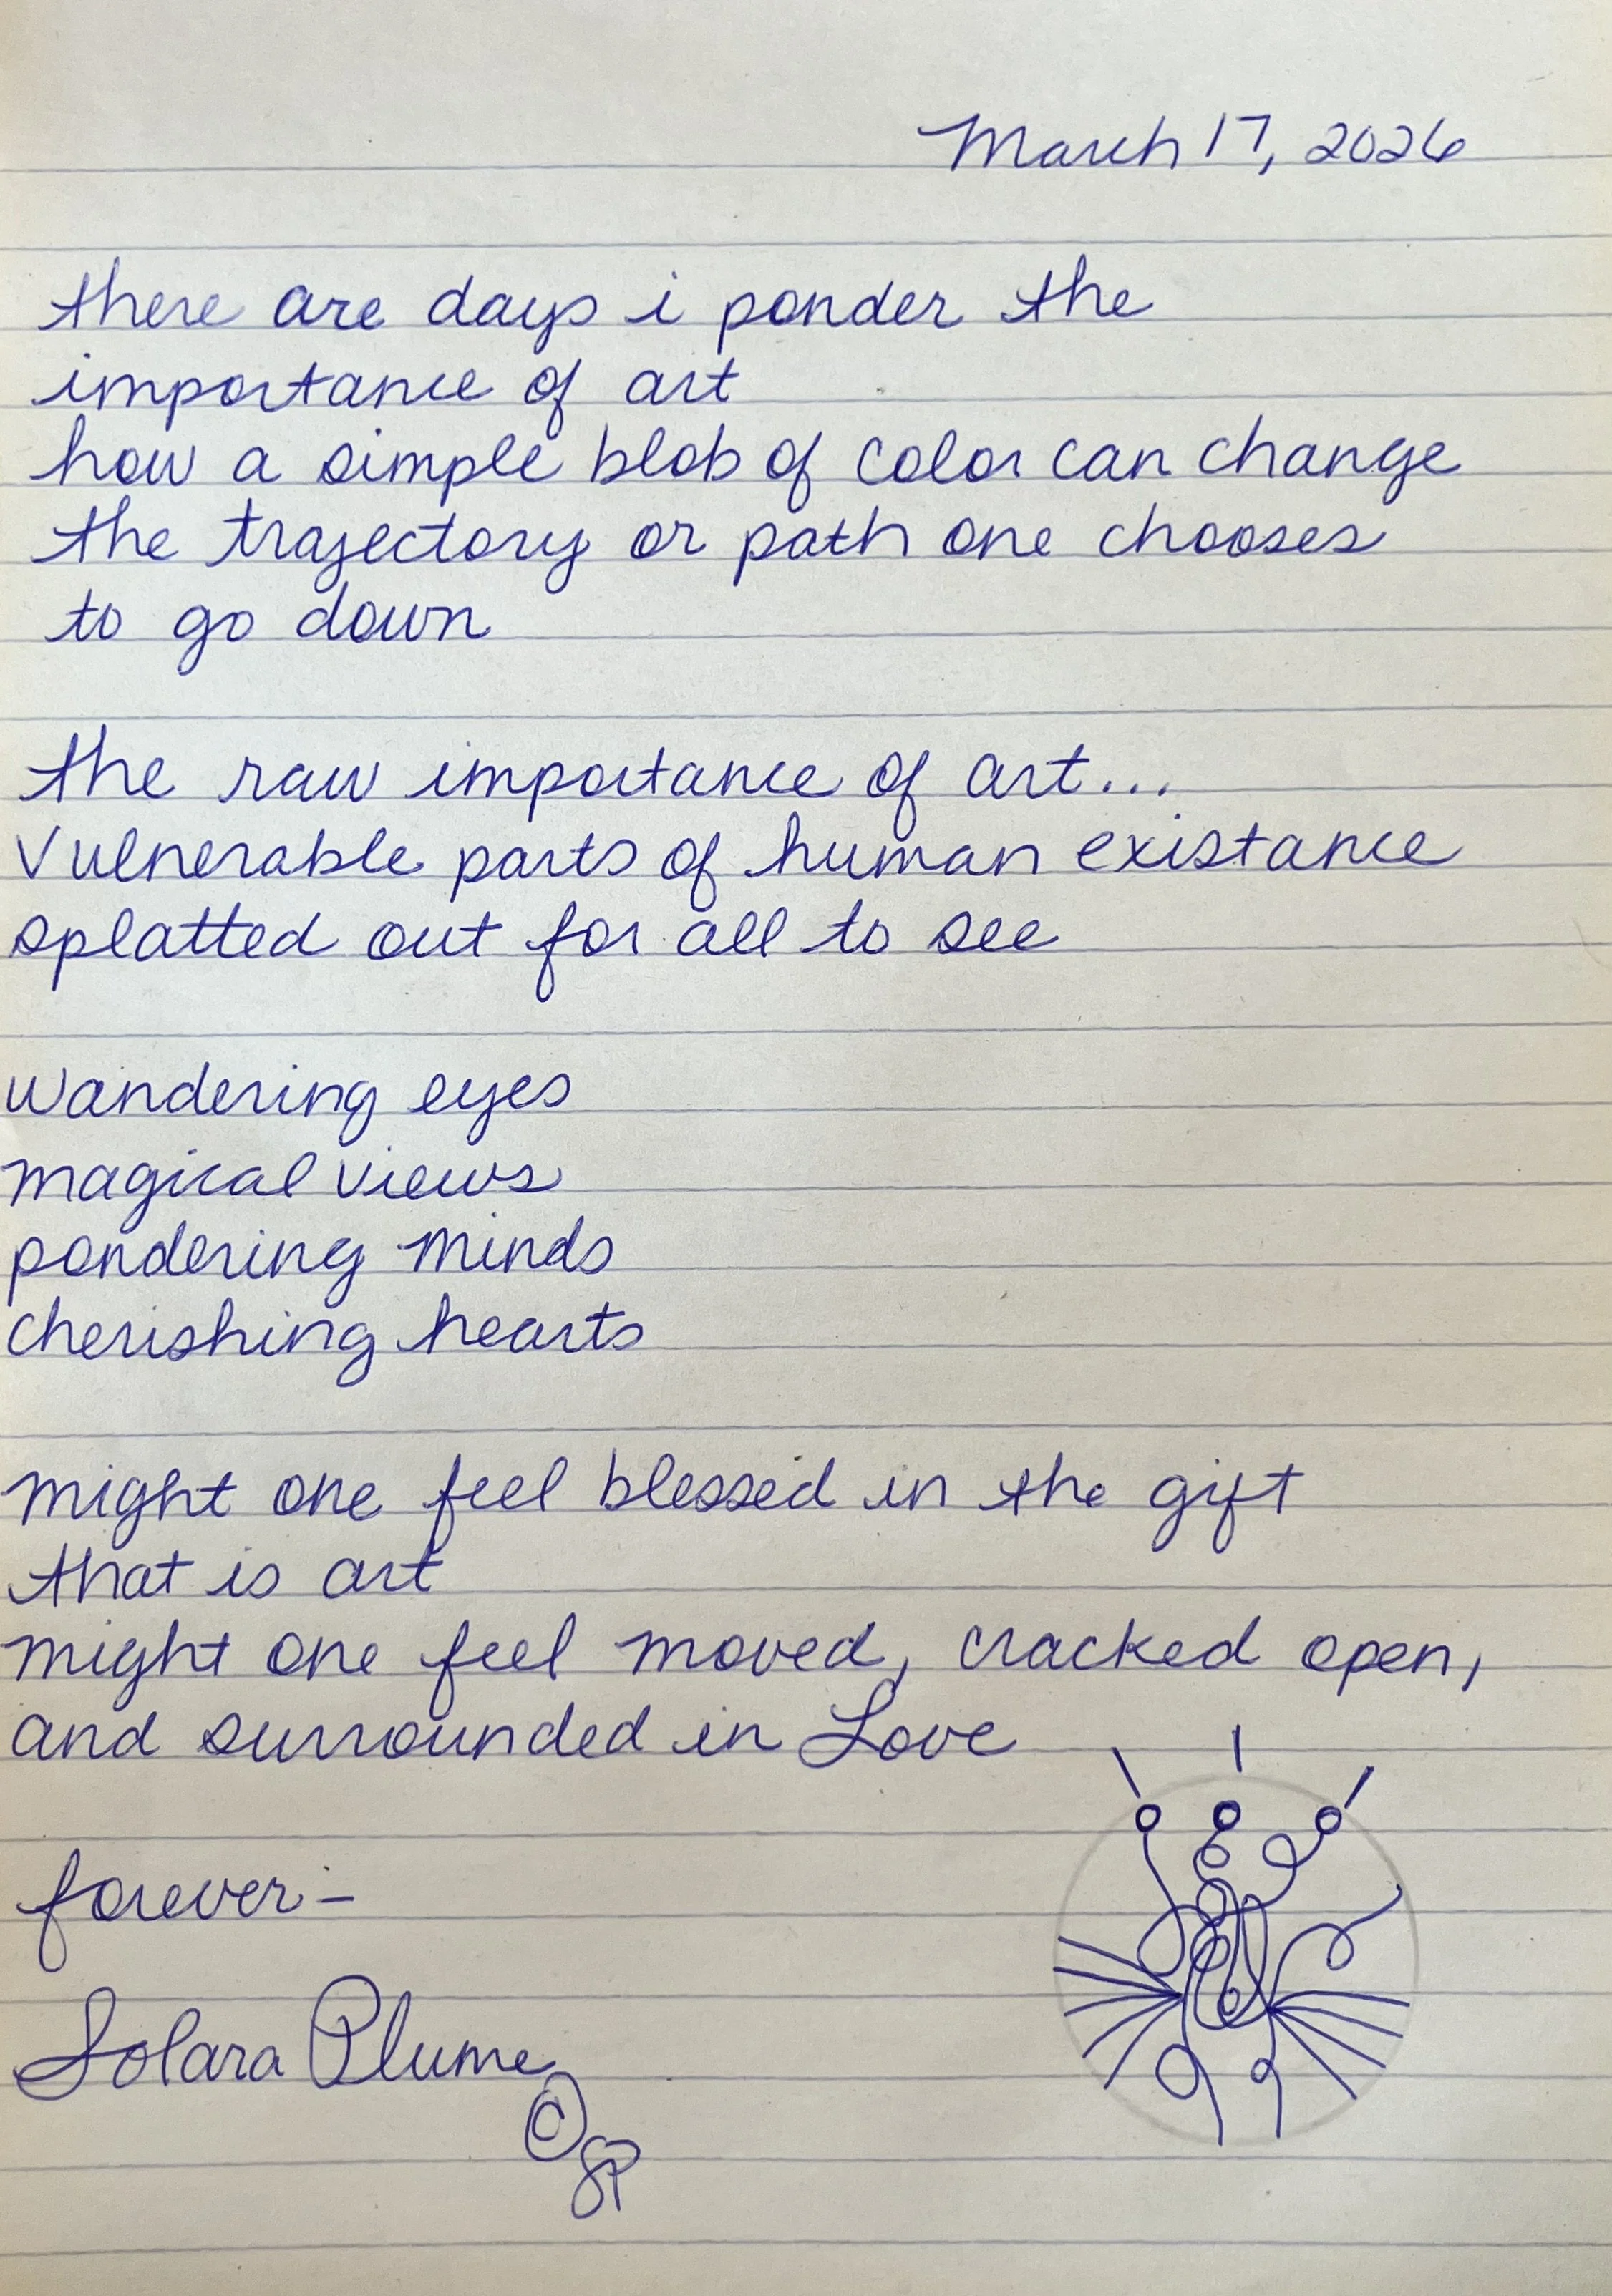 March 17, 2026
there are days i ponder the
importance of art
how a simple blob of color can change
the trajectory or path one chooses
to go down
the raw importance of art...
vulnerable parts of human existance
splatted out for all to see
wandering eyes
magical views
pondering minds
cherishing hearts
might one feel blessed in the gift
that is art
might one feel moved, cracked open,
and surrounded in Love
forever-
Solara Plume
© SP